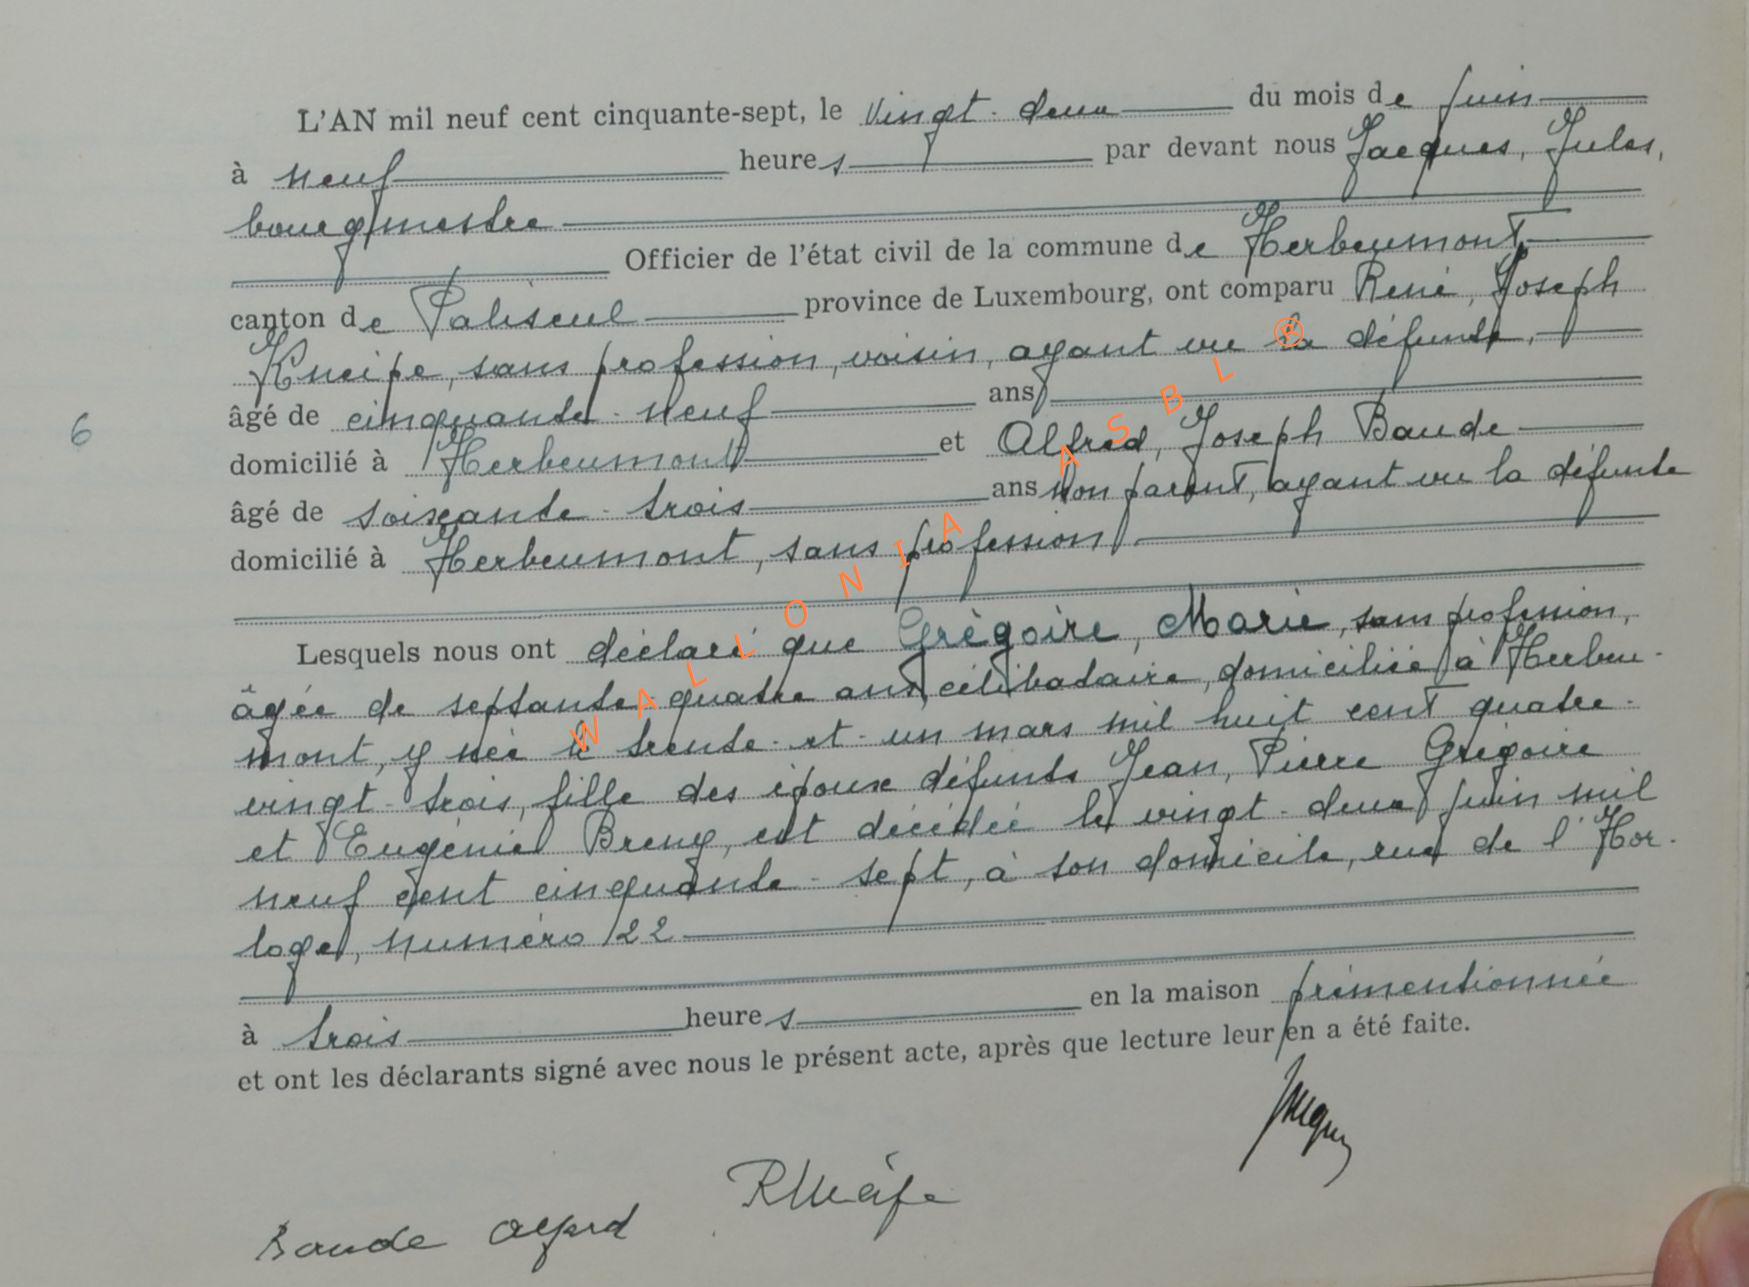 L'AN mil neuf cent cinquante-sept, le vingt-deux du mois de juin
à neuf heures par devant nous Jacques, Jules,
bourgmestre
Officier de l'état civil de la commune de Herbeumont,
canton de Paliseul province de Luxembourg, ont comparu René, Joseph
Kneipe, sans profession, voisin, ayant vu la défunte,
âgé de cinquante-neuf ans
6
domicilié à Herbeumont et Alfred, Joseph Baude
âgé de soixante-trois ans non parent, ayant vu la défunte
domicilié à Herbeumont, sans profession
Lesquels nous ont déclaré que Grégoire, Marie, sans profession,
âgée de septante-quatre ans, célibataire, domiciliée à Herbeu-
mont, y née le trente-et-un mars mil huit cent quatre-
vingt-trois, fille des époux défunts Jean, Pierre Grégoire
et Eugénie Breny, est décédée le vingt-deux juin mil
neuf cent cinquante-sept, à son domicile, rue de l'Hor-
loge, numéro 22
à trois heures en la maison prémentionnée
et ont les déclarants signé avec nous le présent acte, après que lecture leur en a été faite.
Baude Alfred
WALLONIA ASBL ®